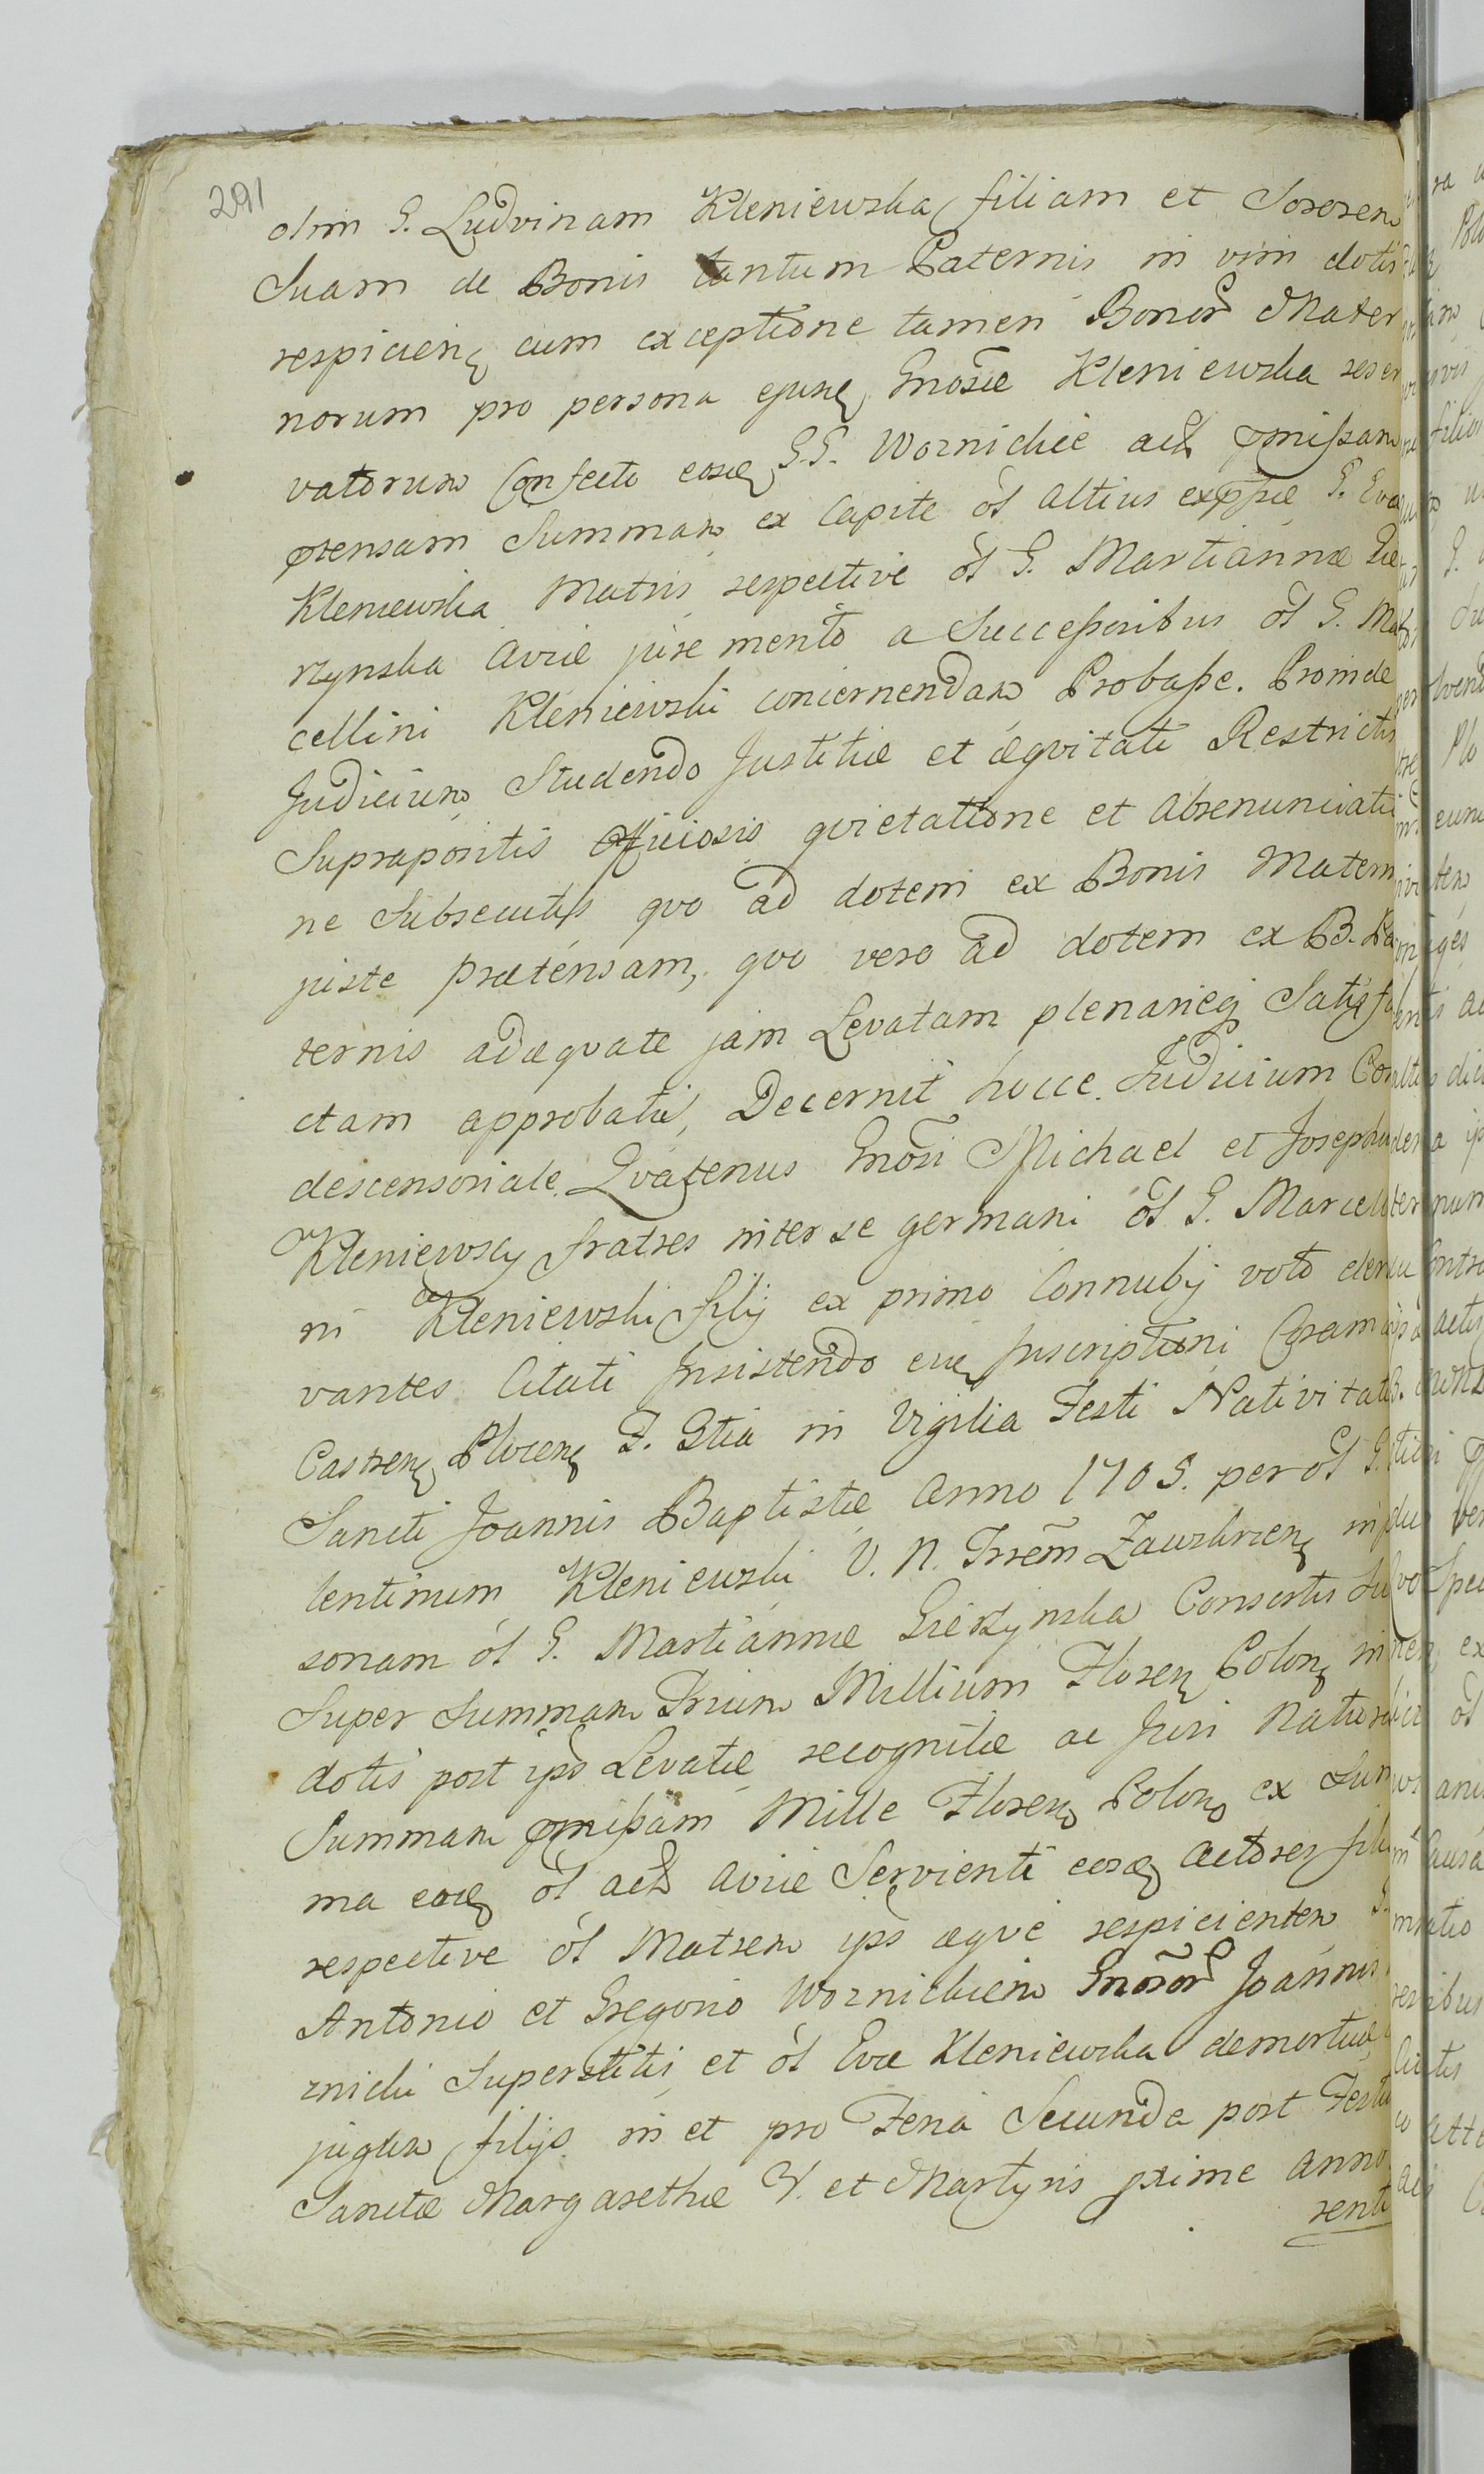 291
olim G. Ludvinam Kleniewska filiam et Sororem
Suam de Bonis tantum Paternis in vim dotis
respicien cum exceptione tamen Bonor Mater
norum pro persona ejusd Gnosae Kleniewska reser
vatorum Confecto eosd G.G. Woznickie act pmissam
ptensam Summam ex Capite ol altius expssae G. Evae
Kleniewska Matris respective ol G. Martiannae Gie
rzynska Aviae jure mento a Successoribus ol G. Mar
cellini Kleniewski concernendam Probasse. Proinde
Judicium Studendo Justitiae et aeqvitati Restrictis
Suprapositis Officiosis qvietatione et Abrenunciatio
ne Subsecutis qvo ad dotem ex Bonis Matern
juste praetensam, qvo vero ad dotem ex B. Pa
ternis adaeqvate jam Levatam plenarieq Satisfa
ctam approbatis, Decernit hocce Judicium Con
descensoriale. Qvatenus Gnosi Michael et Josephus
Kleniewscy fratres inter se germani ol G. Marcelli
ni Kleniewski filij ex primo Connubij voto deri
vantes Citati Insistendo eid Inscriptioni Coram
Castren Plocen F. Stia in Vigilia Festi Nativitatis
Sancti Joannis Baptistae Anno 1705. per ol G.
lentinum Kleniewski V. N. Trrem Zawskrzen in
sonam ol G. Martiannae Gierzynska Consortis Su
Super Summam Trium Millium Floren Polon in
dotis post ips Levatae recognitae ac Juri Natura
Summam pmissam Mille Floren Polon ex Sum
ma ead ol act Aviae Servienti eosd Actores
respective ol Matrem ips aeqve respicientem
Antonio et Gregorio Woznickiem Gnosor Joannis
znicki Superstitis et ol Evae Kleniewska demortuae
jugum filijs in et pro Feria Secunda post Festum
Sanctae Margarethae V. et Martyris pxime Anno
senti